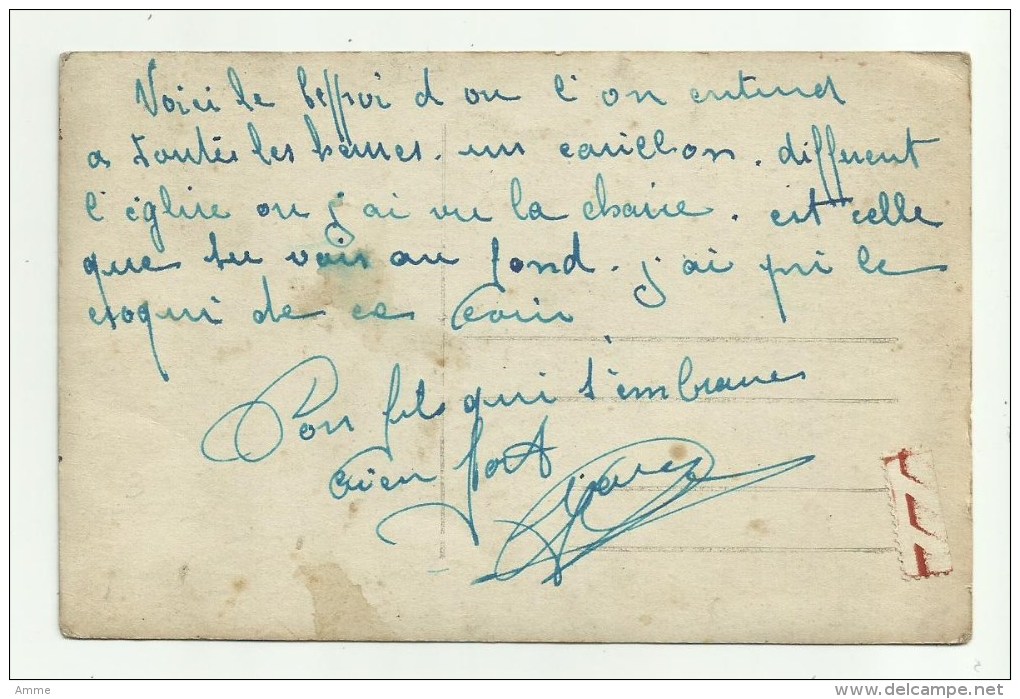 Voici le beffroi d ou l'on entend
a toutes les heures. un carillon. different
l'église ou j'ai vu la chaire. est celle
que tu vois au fond. j'ai pri le
croqui de ce coin
Ton fils qui t'embrasses
bien fort
Amme
www.delcampe.net